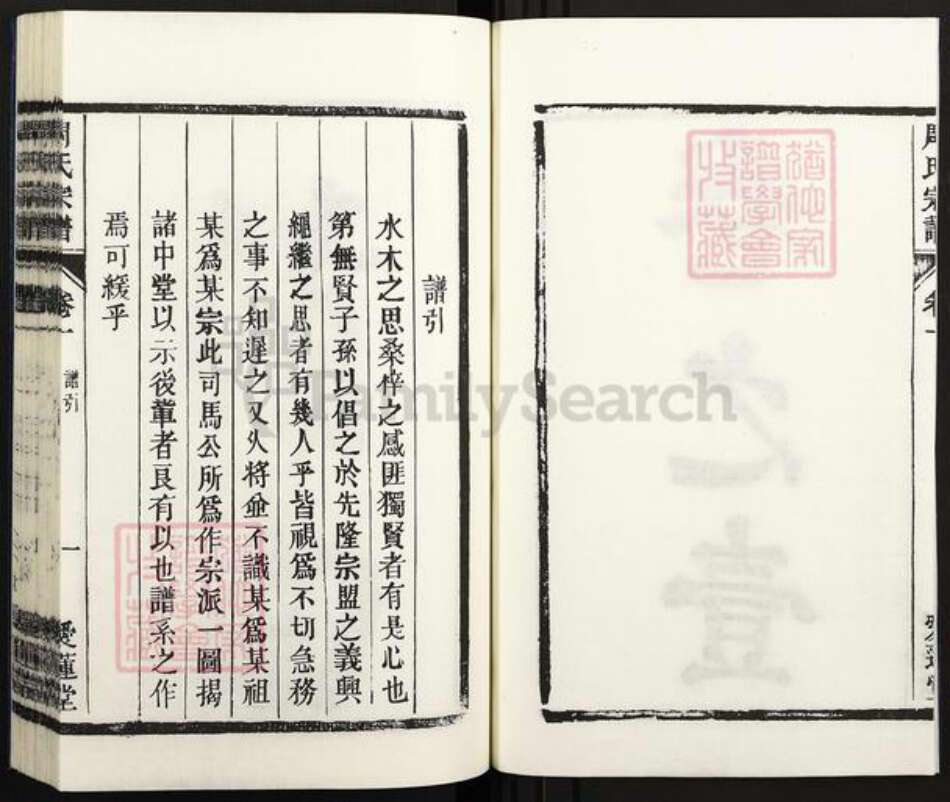 周氏宗譜
卷一
愛蓮堂
猶他家
譜學會
收藏
譜引
水木之思桑梓之感匪獨賢者有是心也
第無賢子孫以倡之於先隆宗盟之義興
繩繼之思者有幾人乎皆視爲不切急務
之事不知遲之又久將並不識某爲某祖
某爲某宗此司馬公所爲作宗派一圖揭
諸中堂以示後輩者良有以也譜系之作
焉可緩乎
周氏宗譜
卷一
譜引
一
愛蓮堂
FamilySearch